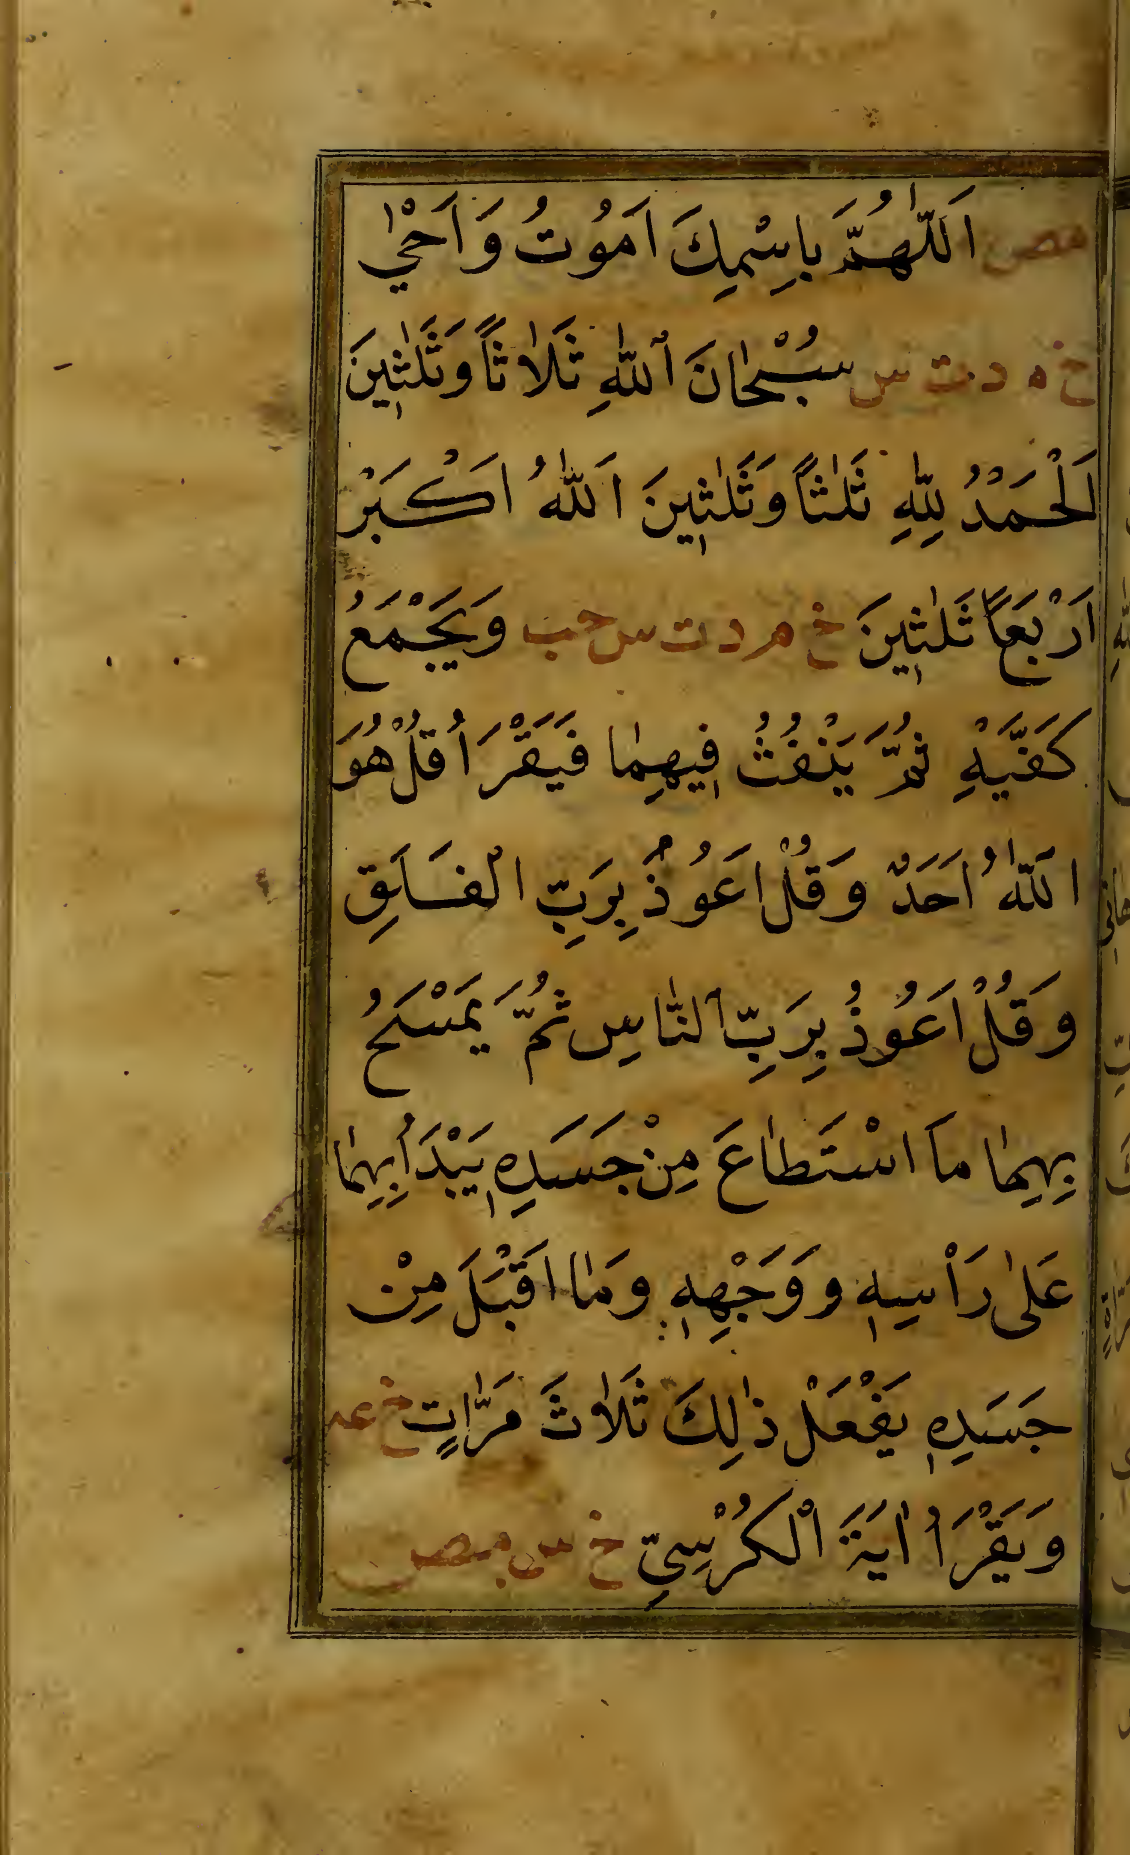 مص اَللّٰهُمَّ بِاسْمِكَ اَمُوتُ وَاَحْيٰ
خ م د ت س سُبْحَانَ اللّٰهِ ثَلَاثًا وَثَلٰثِينَ
اَلْحَمْدُ لِلّٰهِ ثَلٰثًا وَثَلٰثِينَ اَللّٰهُ اَكْبَرْ
اَرْبَعًا ثَلٰثِينَ خ م د ت س حب وَيَجْمَعُ
كَفَّيْهِ ثُمَّ يَنْفُثُ فِيهِمٰا فَيَقْرَاُ قُلْ هُوَ
اللّٰهُ اَحَدٌ وَقُلْ اَعُوذُ بِرَبِّ الْفَلَقِ
وَقُلْ اَعُوذُ بِرَبِّ النّٰاسِ ثُمَّ يَمْسَحُ
بِهِمٰا مَا اسْتَطٰاعَ مِنْ جَسَدِهٖ يَبْدَاُ بِهِمٰا
عَلٰى رَاْسِهٖ وَوَجْهِهٖ وَمٰا اَقْبَلَ مِنْ
جَسَدِهٖ يَفْعَلْ ذٰلِكَ ثَلَاثَ مَرّٰاتٍ خ عه
وَيَقْرَاُ اٰيَةَ الْكُرْسِيِّ خ س مص